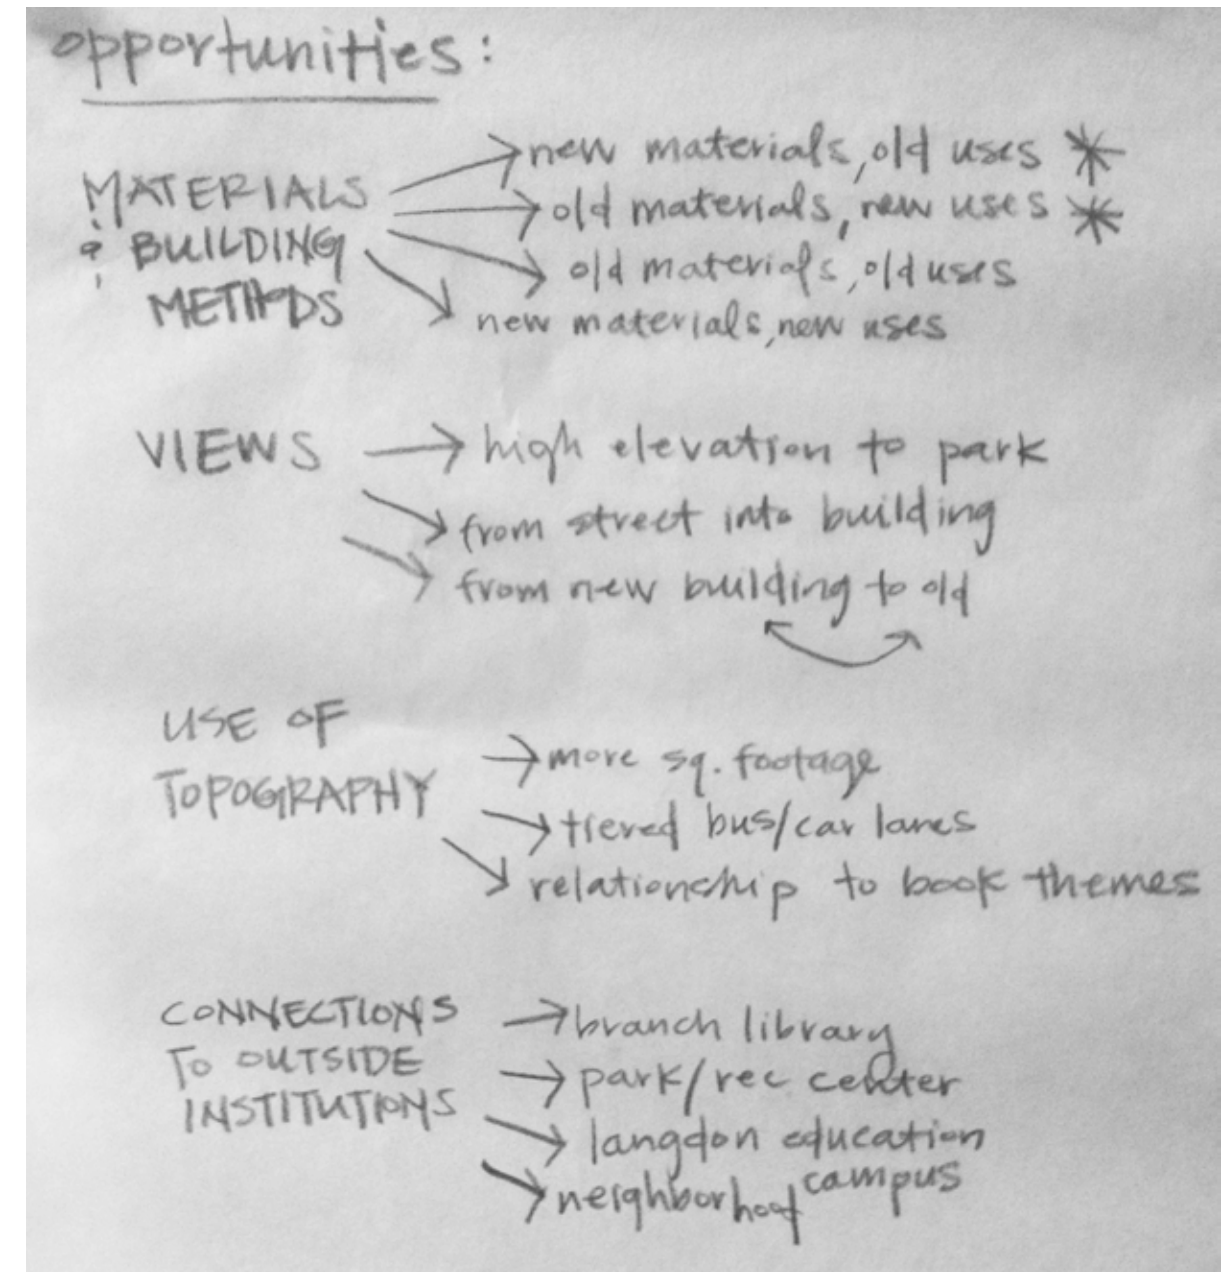 opportunities:
MATERIALS
& BUILDING
METHODS
new materials, old uses *
old materials, new uses *
old materials, old uses
new materials, new uses
VIEWS
high elevation to park
from street into building
from new building to old
USE OF
TOPOGRAPHY
more sq. footage
tiered bus/car lanes
relationship to book themes
CONNECTIONS
TO OUTSIDE
INSTITUTIONS
branch library
park/rec center
langdon education
campus
neighborhood